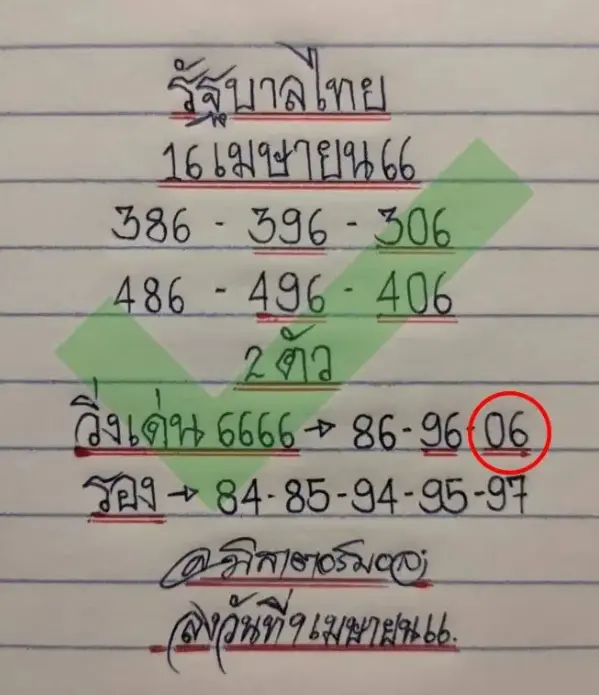 รัฐบาลไทย
16 เมษายน 66
386 - 396 - 306
486 - 496 - 406
2 ตัว
วิ่งเด่น 6666 → 86 - 96 - 06
รอง → 84 - 85 - 94 - 95 - 97
ลงวันที่ 9 เมษายน 66.